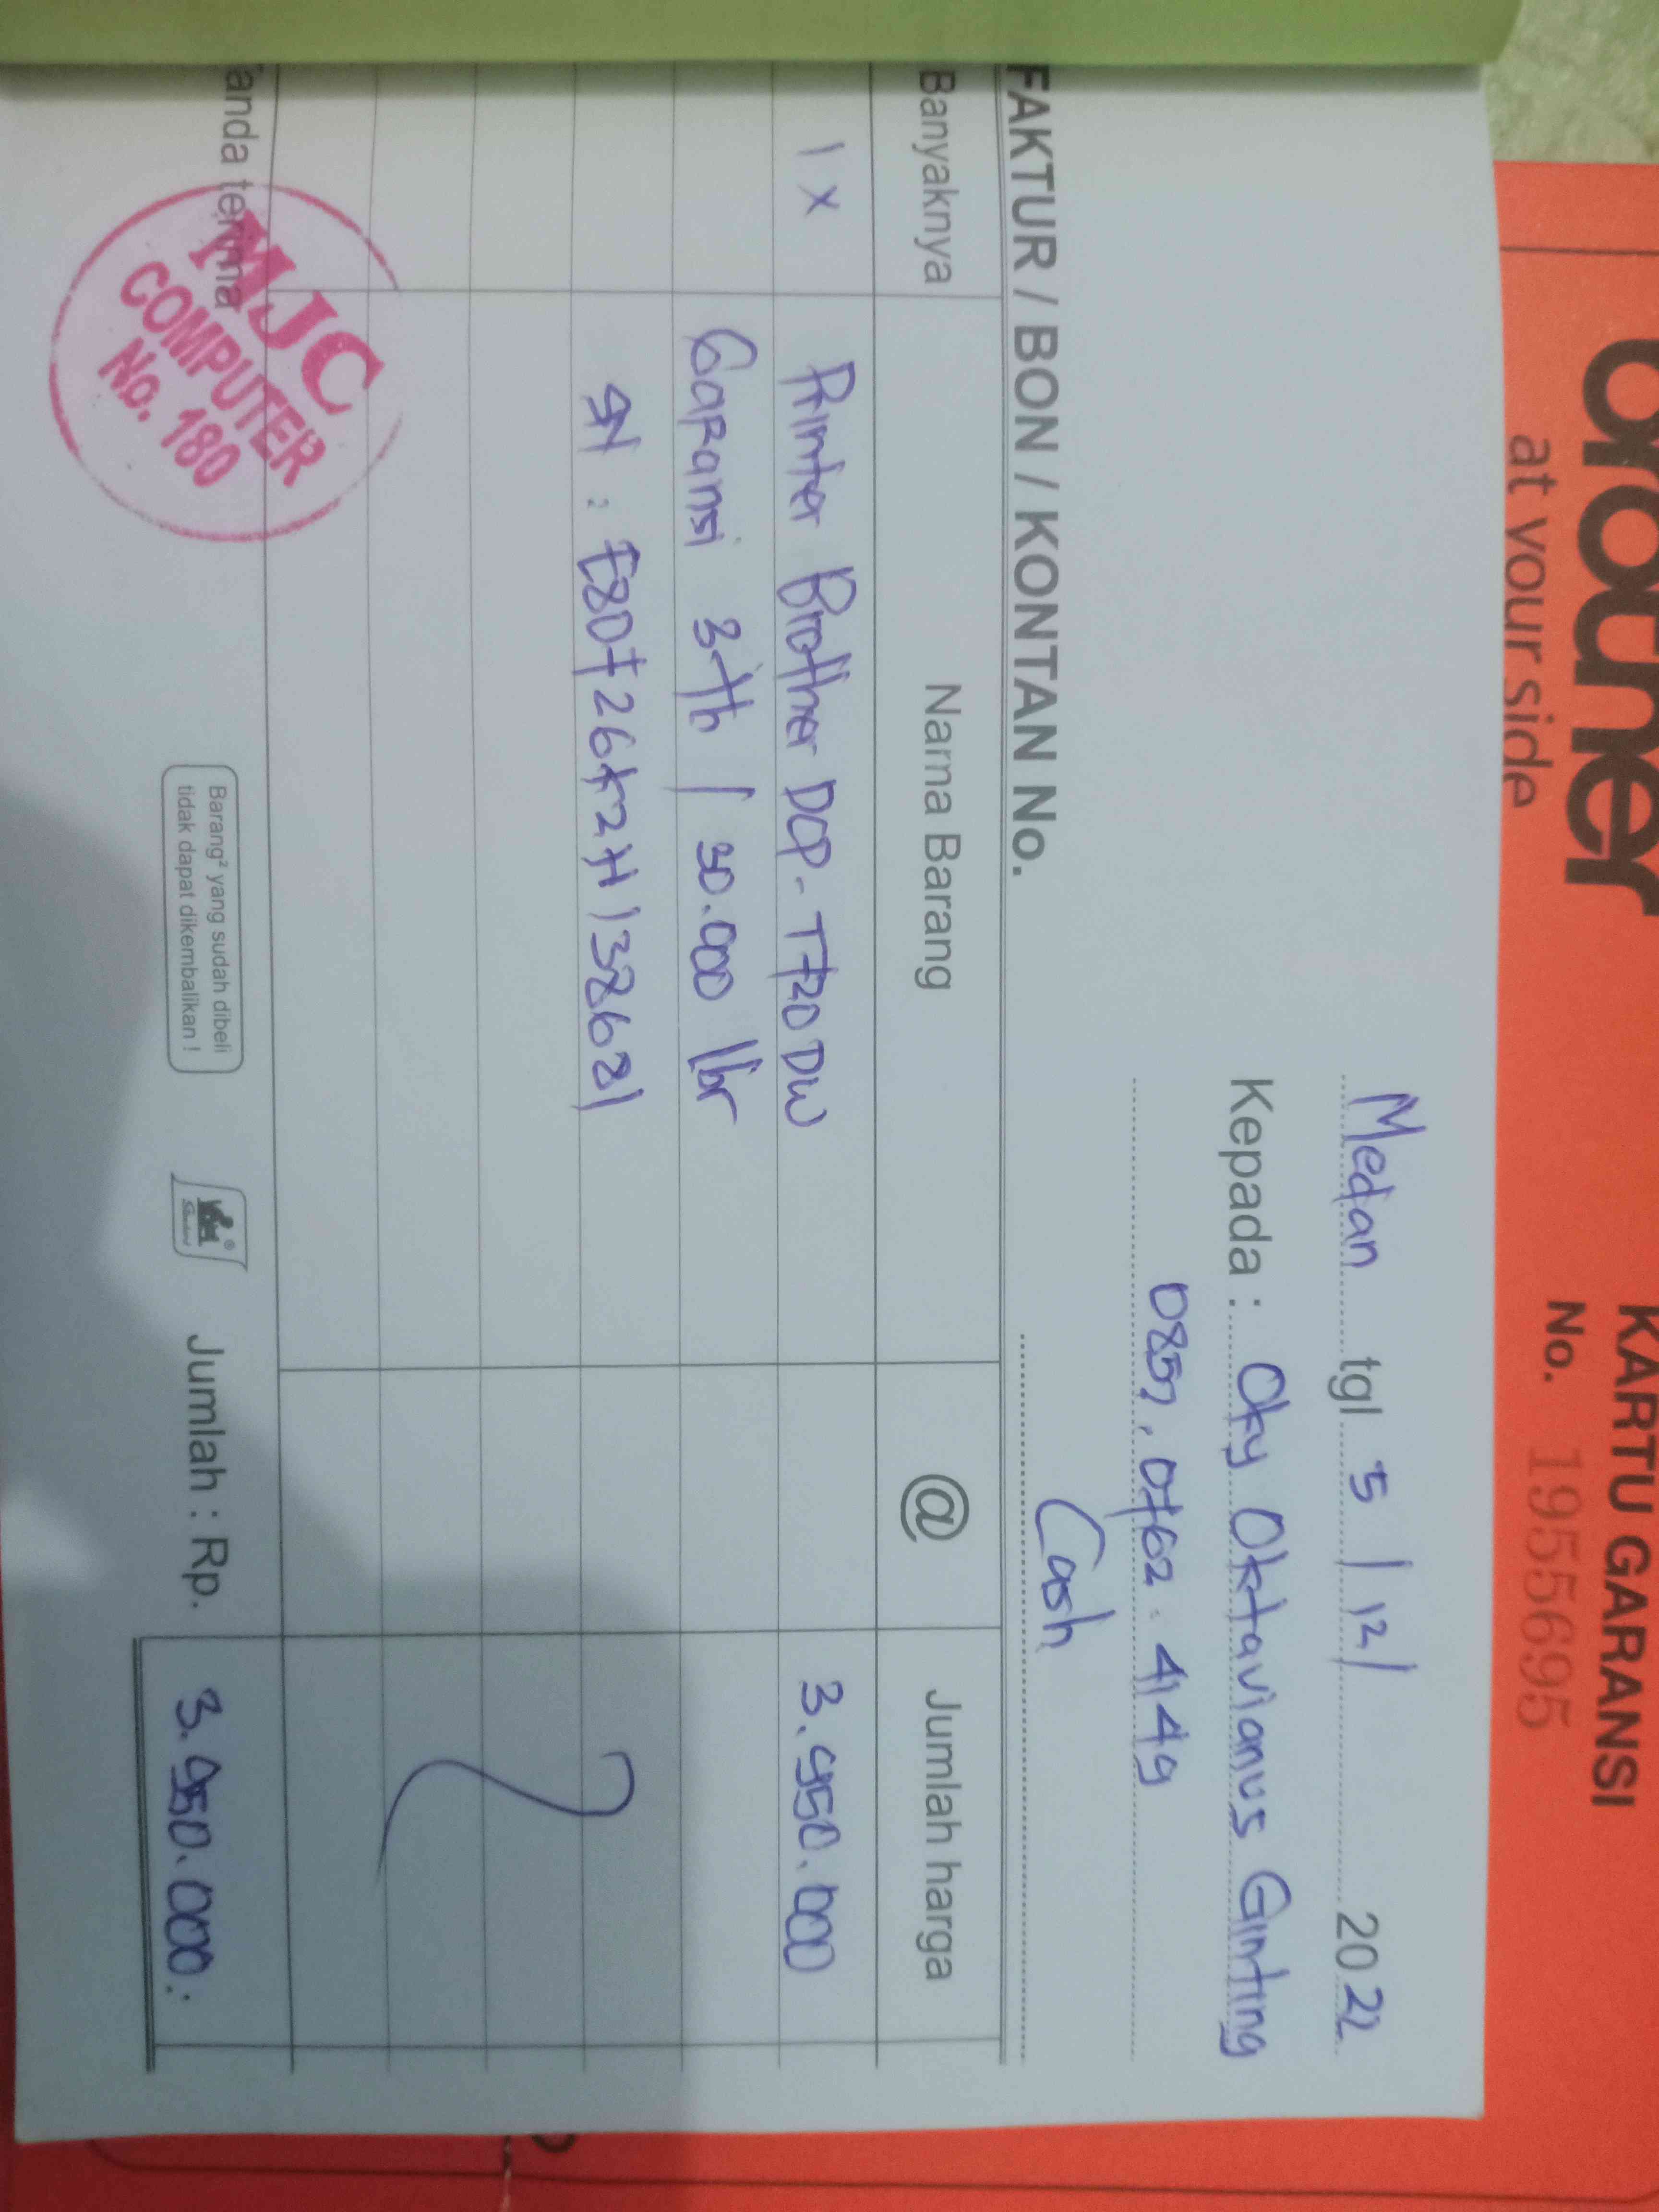 brother
at your side
KARTU GARANSI
No. 1955695
Medan tgl 5 / 12 / 2022
Kepada : Oky Oktavianus Ginting
0857.0762.4149
Cash
FAKTUR / BON / KONTAN No.
Banyaknya Nama Barang @ Jumlah harga
1 x Printer Brother DCP-T720DW 3.950.000
Garansi 3 th / 30.000 lbr
SN : E80726K2H138621
anda terima
MJC
COMPUTER
No. 180
Barang² yang sudah dibeli
tidak dapat dikembalikan !
Jumlah : Rp. 3.950.000.